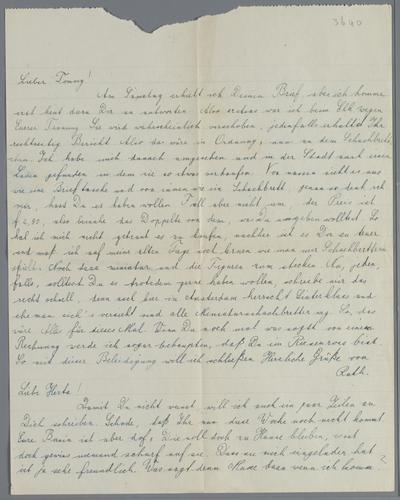 3640
Lieber Tommy!
Am Samstag erhielt ich Deinen Brief, aber ich komme
erst heut dazu Dir zu antworten. Also erstens war ich beim wegen
Eurer Trauung. Sie wird wahrscheinlich verschoben, jedenfalls erhaltet Ihr
rechtzeitig Bericht. Also das wäre in Ordnung, nun zu dem Schachbrett-
chen. Ich habe mich danach umgesehen und in der Stadt auch einen
Laden gefunden in dem sie so etwas verkaufen. Von aussen sieht es aus
wie eine Brieftasche und von innen wie ein Schachbrett, genau so denk ich
mir, hast Du es haben wollen. Fall aber nicht um, der Preis ist
f 2,90, also beinahe das Doppelte von dem, was Du ausgeben wolltest. So
hab ich mich nicht getraut es zu kaufen, nachher ist es Dir zu teuer
und muß ich auf meine alten Tage noch lernen wie man mit Schachbrettern
spielt. Noch dazu miniatur, und die Figuren zum stecken. Na, jeden-
falls, solltest Du es trotzdem gerne haben wollen, schreibe mir das
recht schnell, denn auch hier in Amsterdam herrscht Sinterklaas und
ehe man sich's versieht sind alle Miniaturschachbretter weg. So, das
wäre Alles für dieses Mal. Wenn Du noch mal was sagst von einer
Rechnung werde ich sogar behaupten, daß Du ein Riesenroß bist.
So mit dieser Beleidigung will ich schließen. Herzliche Grüße von
Ruth.
Liebe Herta!
Damit Du nicht weinst, will ich auch ein paar Zeilen an
Dich schreiben. Schade, daß Ihr nun diese Woche noch nicht kommt.
Eure Basia ist aber doof. Die soll doch zu Hause bleiben,
doch gewiss niemand scharf auf sie. Dass sie mich eingeladen hat
ist ja sehr freundlich. Was sagt denn dazu wenn ich komm?